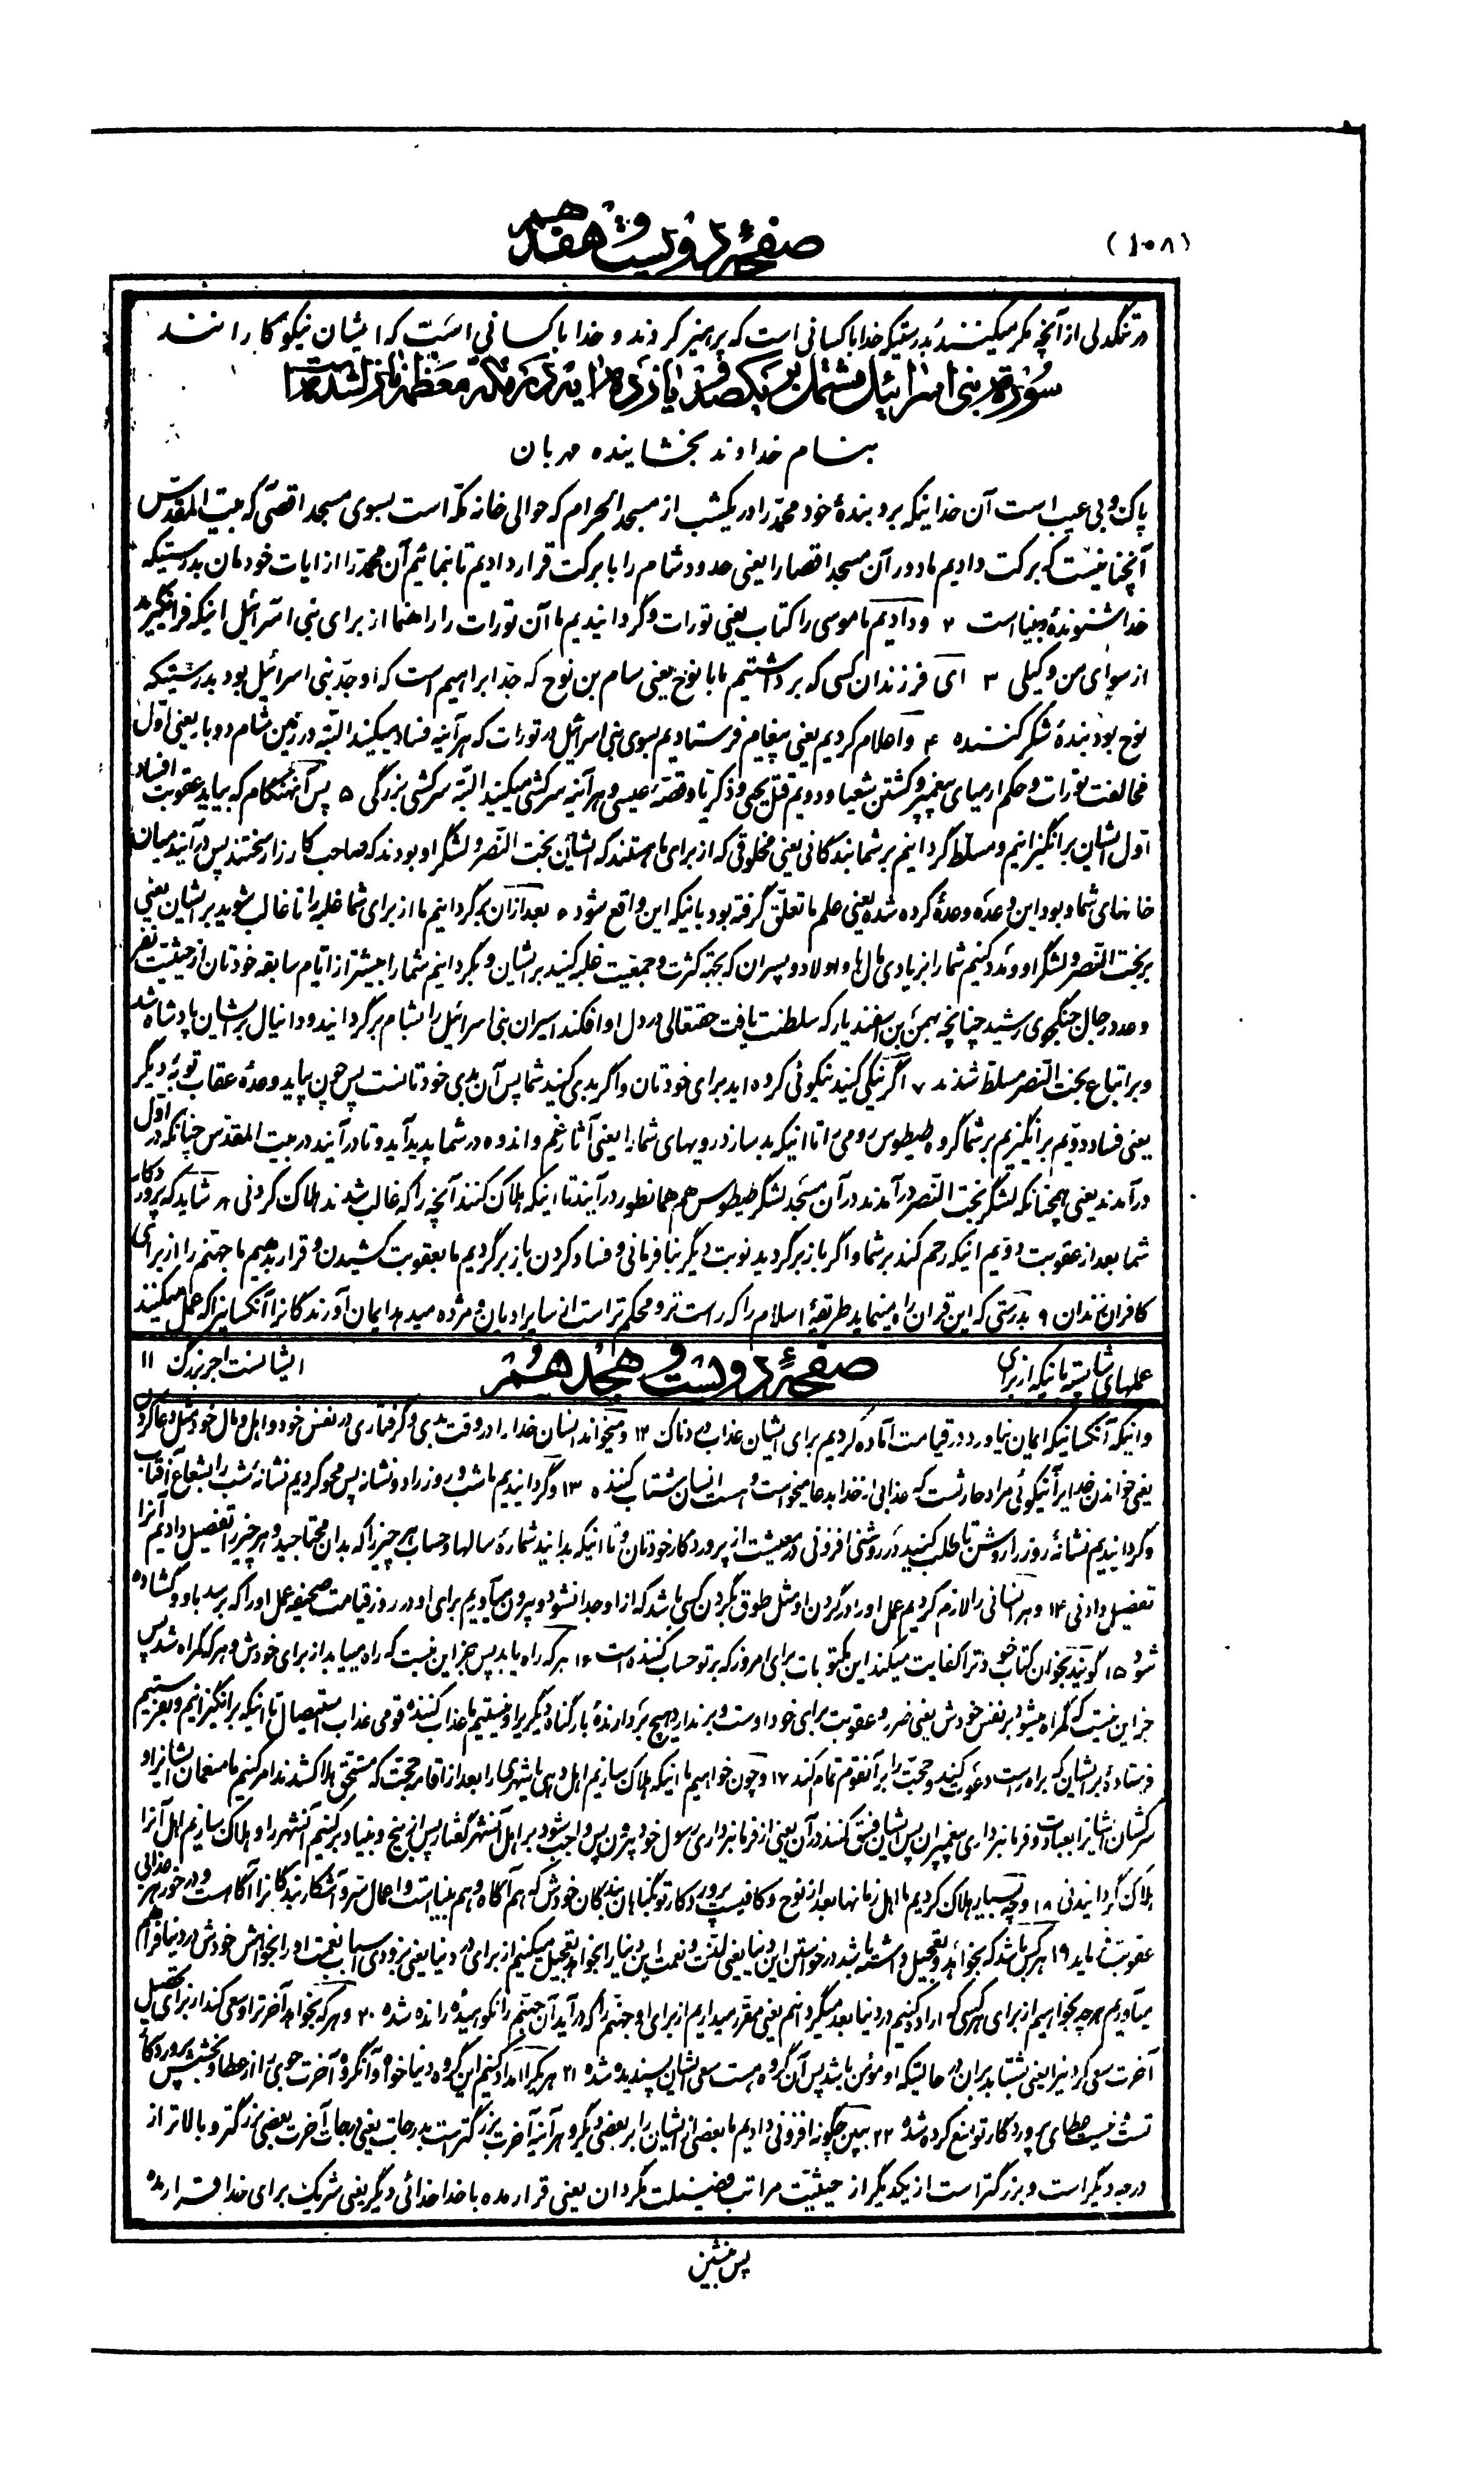 (۱۰۸)
صفحهٔ دویست و هفدهم
در تنگدلی از آنچه مکر میکنند بدرستیکه خدا با کسانی است که پرهیز کردند و خدا با کسانی است که ایشان نیکوکارانند
سوره بنی اسرائیل مشتمل بر یکصد و یازده آیه در مکه معظمه نازل شده است
بنام خداوند بخشاینده مهربان
پاک و بی عیب است آن خدائیکه برد بندهٔ خود محمد را در یکشب از مسجد الحرام که حوالی خانه مکه است بسوی مسجد اقصی که بیت المقدس
آنچنانیست که برکت دادیم ما دور آن مسجد اقصا را یعنی حدود شام را با برکت قرار دادیم تا بنمائیم آن محمد را از ایات خودمان بدرستیکه
خدا شنونده و بینا است ۲ و دادیم ما موسی را کتاب یعنی تورات و گردانیدیم ما آن تورات را راهنما از برای بنی اسرائیل اینکه فرانگیرید
از سوای من وکیلی ۳ ای فرزندان کسی که برداشتیم ما با نوح یعنی سام بن نوح که جد ابراهیم است که او جد بنی اسرائیل بود بدرستیکه
نوح بود بندهٔ شکر کننده ۴ و اعلام کردیم یعنی پیغام فرستادیم بسوی بنی اسرائیل در تورات که هر آینه فساد میکنید البته در زمین شام دو بار یعنی اول
مخالفت تورات و حکم ارمیای پیغمبر و کشتن شعیا و دویم قتل یحیی و ذکریا و قصد عیسی و هر آینه سرکشی میکنید البته سرکشی بزرگی ۵ پس آنهنگام که بیاید عقوبت افساد
اول ایشان برانگیزانیم و مسلط گردانیم بر شما بندگانی یعنی مخلوقی که از برای ما هستند که ایشان بخت النصر و لشگر او بودند که صاحب کارزار سختند پس درآیند میان
خانهای شما و بود این وعده وعدهٔ کرده شده یعنی علم ما تعلق گرفته بود باینکه این واقع شود ۶ بعد ازان برگردانیم ما از برای شما غلبه را تا غالب شوید بر ایشان یعنی
بر بخت النصر و لشگر او و مدد کنیم شما را بزیادی مال ها و اولاد و پسران که بجهة کثرت و جمعیت غلبه کنید بر ایشان و بگردانیم شما را بیشتر از ایام سابقه خودتان از حیثیت نفر
و عدد رجال جنگجوی رشید چنانچه بهمن بن اسفندیار که سلطنت یافت حقتعالی در دل او افکند اسیران بنی اسرائیل را بشام برگردانید و دانیال بر ایشان پادشاه شد
و بر اتباع بخت النصر مسلط شدند ۷ اگر نیکی کنید نیکوئی کرده اید برای خودتان و اگر بدی کنید شما پس آن بدی خودتانست پس چون بیاید وعدهٔ عقاب نوبهٔ دیگر
یعنی فساد دویم برانگیزیم بر شما گروه طیطوس رومی را تا اینکه بد سازد رویهای شما را یعنی آثار غم و اندوه در شما پدید آید و تا درآیند در بیت المقدس چنانکه در اول
درآمدند یعنی همچنانکه لشگر بخت النصر درآمدند در آن مسجد لشگر طیطوس هم همانطور درآیند تا اینکه هلاک کنند آنچه را که غالب شدند هلاک کردنی ۸ شاید که پروردکار
شما بعد از عقوبت دویم اینکه رحم کند بر شما و اگر باز برگردید نوبت دیگر بنافرمانی و فساد کردن باز برگردیم ما بعقوبت کشیدن و قرار بدهیم ما جهنم را از برای
کافران زندان ۹ بدرستی که این قران راه مینماید طریقهٔ اسلام را که راست تر و محکم تر است از سایر ادیان و مژده میدهد ایمان آورندگانرا آنکسانیرا که عمل میکنند
عملهای شایسته باینکه از برای
صفحهٔ دویست و هجدهم
ایشانست اجر بزرگ ۱۱
و اینکه آنکسانیکه ایمان نیاورد در قیامت آماده کردیم برای ایشان عذاب دردناک ۱۲ و میخواند انسان خدا را در وقت بدی و گرفتاری در نفس خود و اهل و مال خود مثل دعا کردن
یعنی خواندن خدا برای نیکوئی مراد حارثست که عذابی از خدا بدعا میخواست و هست انسان شتاب کننده ۱۳ و گردانیدیم ما شب و روز را دو نشانه پس محو کردیم نشانهٔ شب را بشعاع آفتاب
و گردانیدیم نشانهٔ روز را روشن تا طلب کنید در روشنی افزونی در معیشت از پروردکار خودتان و تا اینکه بدانید شمارهٔ سالها و حساب هر چیز را که بدان محتاجید و هر چیز را تفصیل دادیم آنرا
تفصیل دادنی ۱۴ و هر انسانی را لازم کردیم عمل او را در گردن او مثل طوق بگردن کسی باشد که از او جدا نشود و بیرون میآوریم برای او در روز قیامت صحیفه عمل او را که برسد باو و گشاده
شود ۱۵ گویند بخوان کتاب خود ترا کفایت میکند این مکتوبات برای امروز که بر تو حساب کننده است ۱۶ هر که راه یابد پس جز این نیست که راه مییابد از برای خودش و هر که گمراه شد پس
جز این نیست که گمراه میشود بر نفس خودش یعنی ضرر و عقوبت برای خود اوست و بر ندارد هیچ بردارندهٔ بار گناه دیگریرا و نیستیم ما عذاب کننده قومی عذاب استیصال تا اینکه برانگیزانیم و بفرستیم
فرستادهٔ بر ایشان که براه راست دعوت کنند و حجت را بر آنقوم تمام کند ۱۷ و چون خواهیم ما اینکه هلاک سازیم اهل دهی یا شهری را بعد از اقامه حجت که مستحق هلاک شدند امر کنیم ما منعمان ایشانرا و
سرکشان ایشانرا بعبادت و فرمانبرداری پیغمبران پس ایشان فسق کنند در آن یعنی از فرمانبرداری رسول خود بیرون پس واجب شود بر اهل آنشهر گفتار پس از بیخ و بنیاد برکنیم آنشهر را و هلاک سازیم اهل آنرا
هلاک گردانیدنی ۱۸ و چه بسیار هلاک کردیم ما اهل زمانها بعد از نوح و کافیست پروردکار تو بگناهان بندگان خودش که هم آگاه و هم بیناست و اعمال سر و آشکار بندگانرا آگاست و در خور هر عذابی
عقوبت نماید ۱۹ هر کس باشد که بخواهد و تعجیل داشته باشد در خواستن این دنیا یعنی لذت و نعمت این دنیا را بخواهد تعجیل میکنیم از برای او در دنیا یعنی بزودی اسباب نعمت او را بخواهش خودش در دنیا فراهم
میآوریم هر چه بخواهیم از برای هر کسی که اراده کنیم در دنیا بعد میگردانیم یعنی مقرر میداریم از برای او جهنم را که درآید آن جهنم را نکوهیده رانده شده ۲۰ و هر که بخواهد آخرترا و سعی کند از برای تحصیل
آخرت سعی کردنیرا یعنی بشتابد بران در حالتیکه او مؤمن باشد پس آن گروه هست سعی ایشان پسندیده شده ۲۱ هر یکرا امداد کنیم این گروه دنیا خواه و آنگروه آخرت جوی را از عطا و بخشش پروردکار
تست نیست عطای پروردگار تو منع کرده شده ۲۲ ببین چگونه افزونی دادیم ما بعضی از ایشان را بر بعضی دیگر و هر آینه آخرت بزرگتر است بدرجات یعنی درجات آخرت بعضی بزرگتر و بالاتر از
درجه دیگر است و بزرگتر است از یکدیگر از حیثیت مراتب فضیلت مگردان یعنی قرار مده با خدا خدائی دیگر یعنی شریک برای خدا قرار مده
پس بنشین